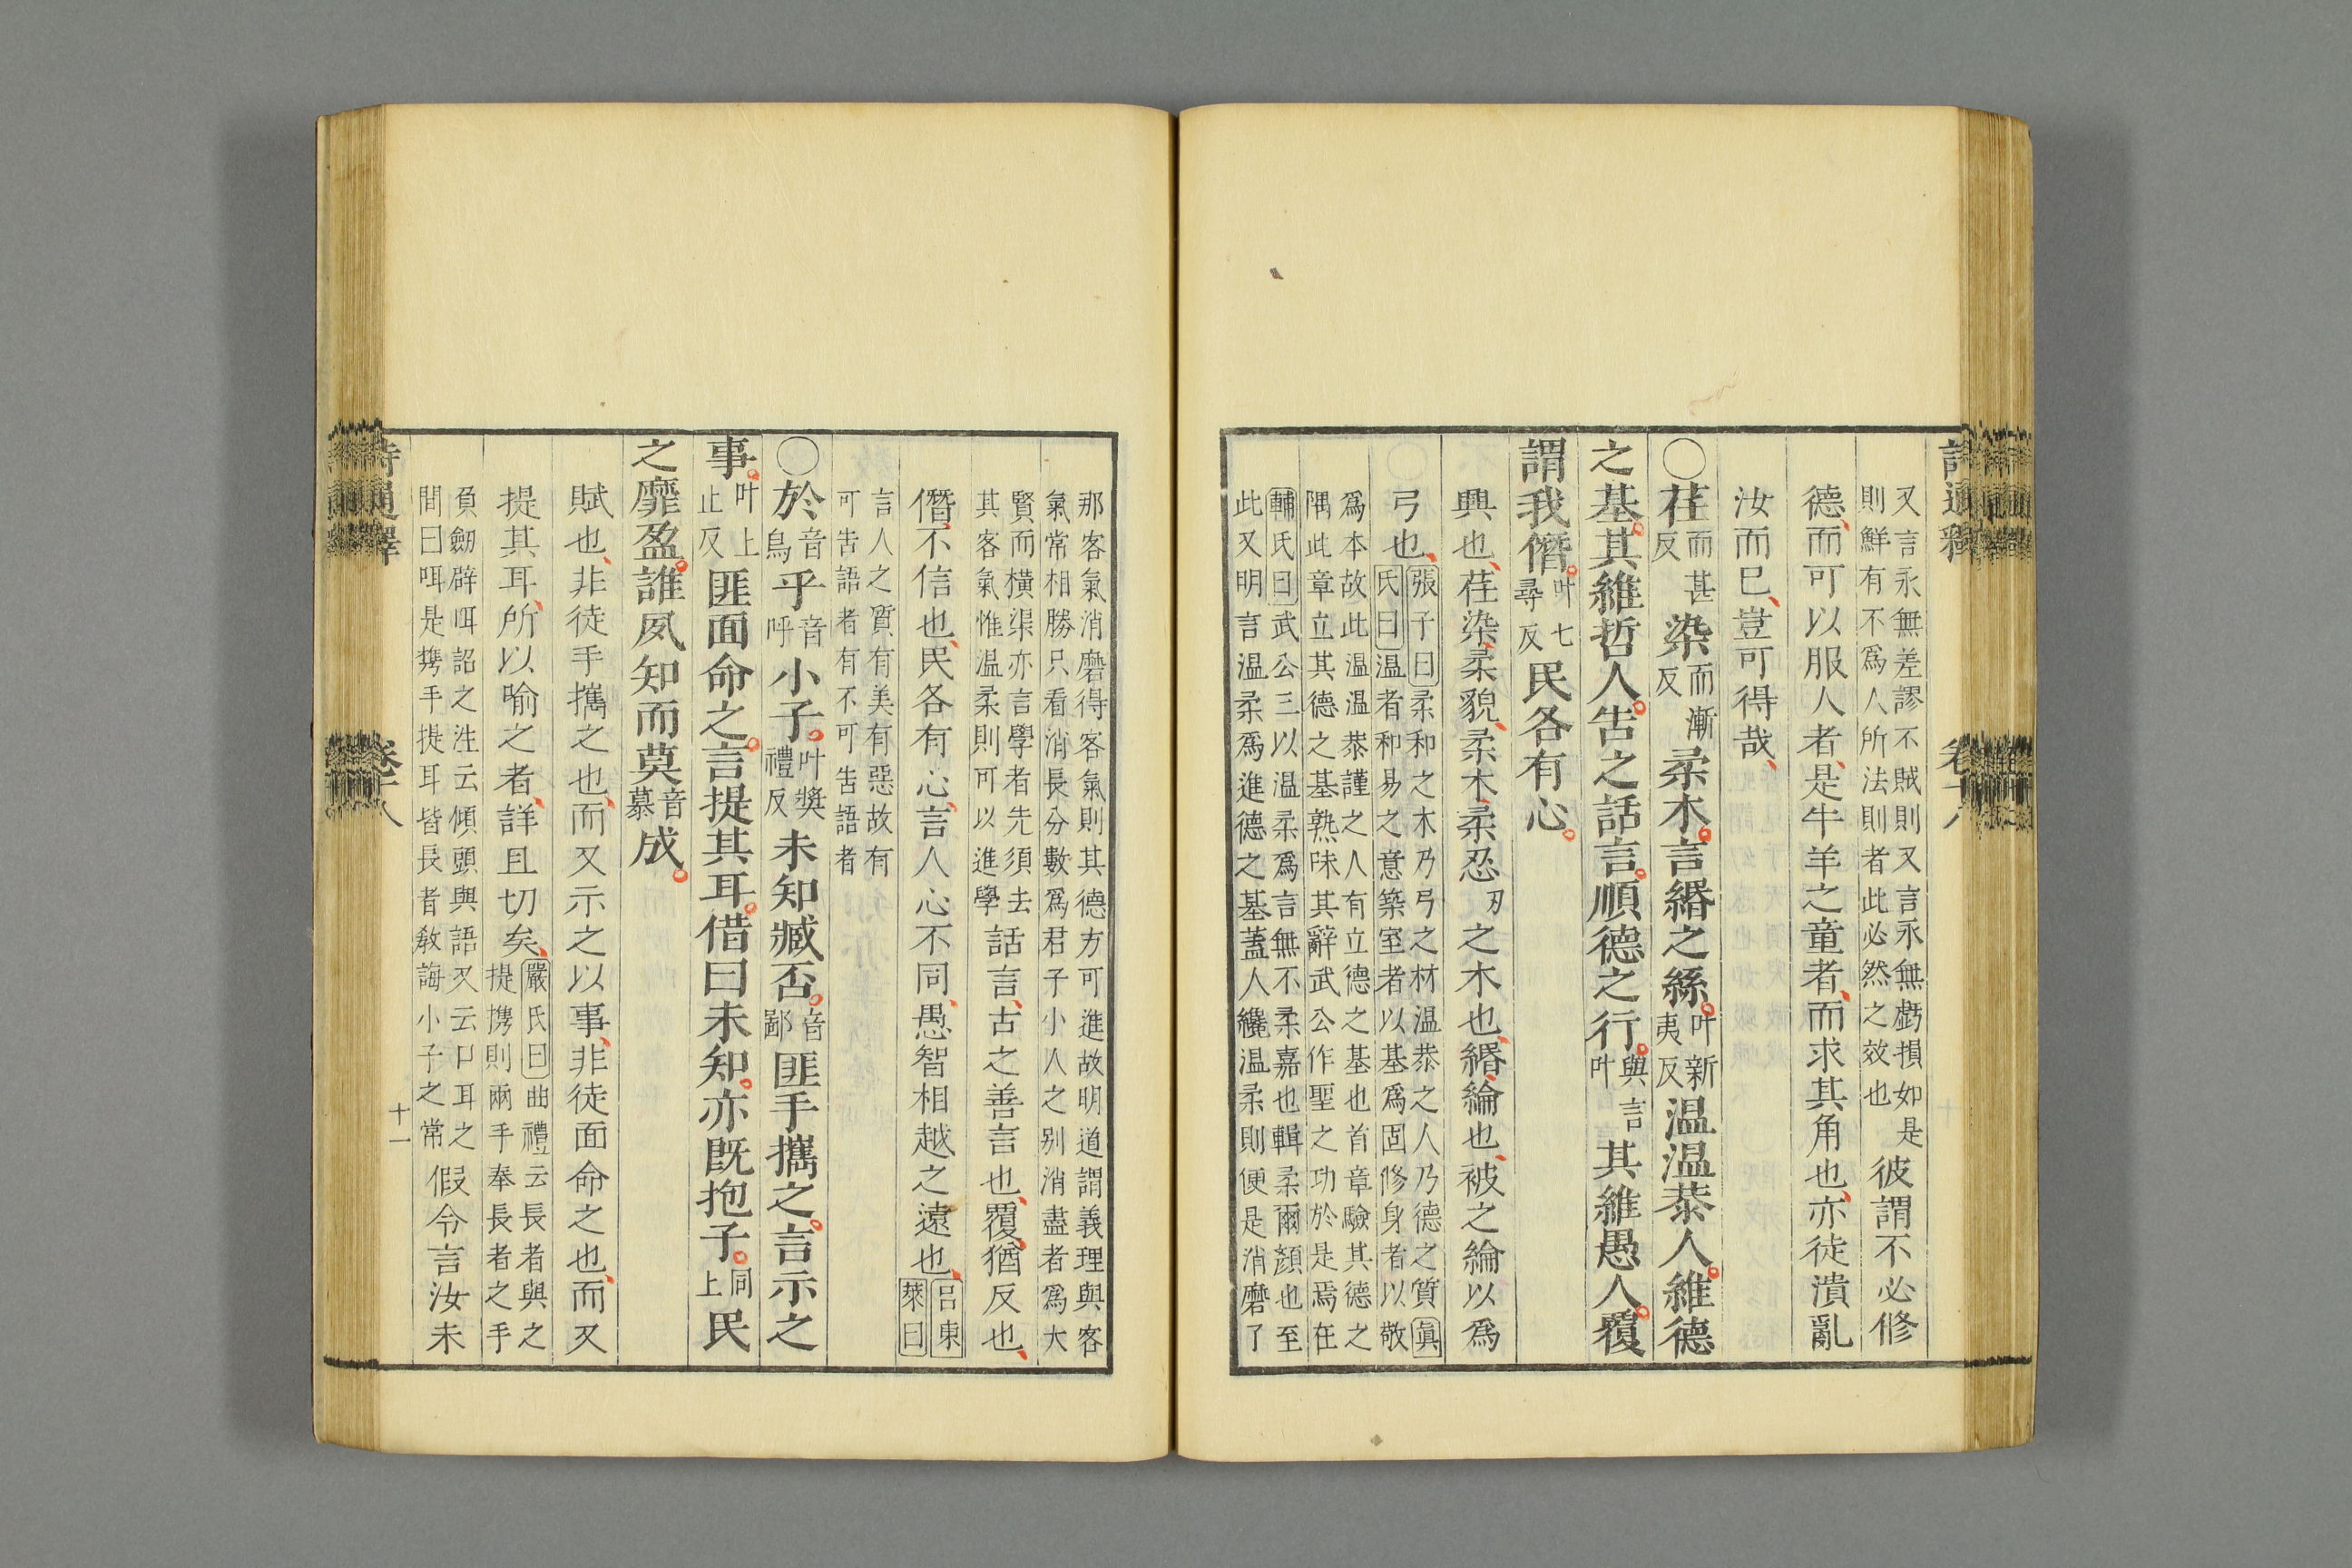 詩通釋
卷十八
又言永無差謬不賊則又言永無虧損如是
則鮮有不爲人所法則者此必然之效也
彼謂不必修
德而可以服人者是牛羊之童者而求其角也亦徒潰亂
汝而已豈可得哉
○荏而甚反染而漸反柔木言緡之絲叶新夷反温温恭人維德
之基其維哲人告之話言順德之行與言叶其維愚人覆
謂我僭叶七尋反民各有心
興也荏染柔貌柔木柔忍刃之木也緡綸也被之綸以爲
弓也
張子曰柔和之木乃弓之材温恭之人乃德之質眞
氏曰温者和易之意築室者以基爲固修身者以敬
爲本故此温温恭謹之人有立德之基也首章驗其德之
隅此章立其德之基熟味其辭武公作聖之功於是焉在
輔氏曰武公三以温柔爲言無不柔嘉也輯柔爾顏也至
此又明言温柔爲進德之基蓋人纔温柔則便是消磨了
那客氣消磨得客氣則其德方可進故明道謂義理與客
氣常相勝只看消長分數爲君子小人之别消盡者爲大
賢而橫渠亦言學者先須去
其客氣惟温柔則可以進學
話言古之善言也覆猶反也
僭不信也民各有心言人心不同愚智相越之遠也
呂東
萊曰
言人之質有美有惡故有
可告語者有不可告語者
○於音烏乎音呼小子叶奬禮反未知臧否音鄙匪手攜之言示之
事叶上止反匪面命之言提其耳借曰未知亦既抱子同上民
之靡盈誰夙知而莫音慕成
賦也非徒手攜之也而又示之以事非徒面命之也而又
提其耳所以喻之者詳且切矣
嚴氏曰曲禮云長者與之
提携則兩手奉長者之手
負劒辟咡詔之注云傾頭與語又云口耳之
間曰咡是携手提耳皆長者敎誨小子之常
假令言汝未
詩通釋
卷十八
十一